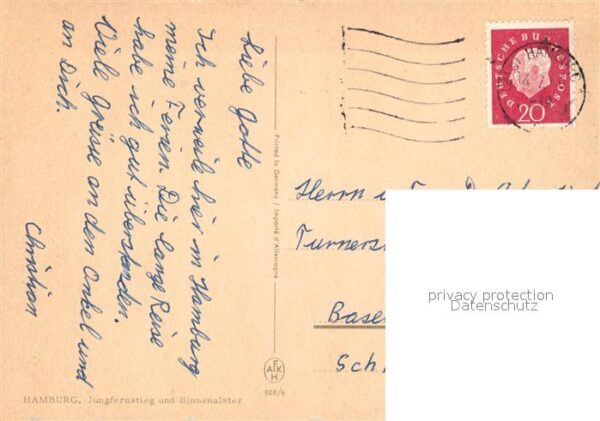 Liebe Gotte
Ich verweile hier in Hamburg
meine Ferien. Die lange Reise
habe ich gut überstanden.
Viele Grüsse an den Onkel und
an Dich.
Christian
Printed in Germany / Importé d'Allemagne
DEUTSCHE BUNDESPOST
20
14.7
Herrn u. 
Turners
Base
Sch
privacy protection
Datenschutz
AFKH
920/6
HAMBURG, Jungfernstieg und Binnenalster